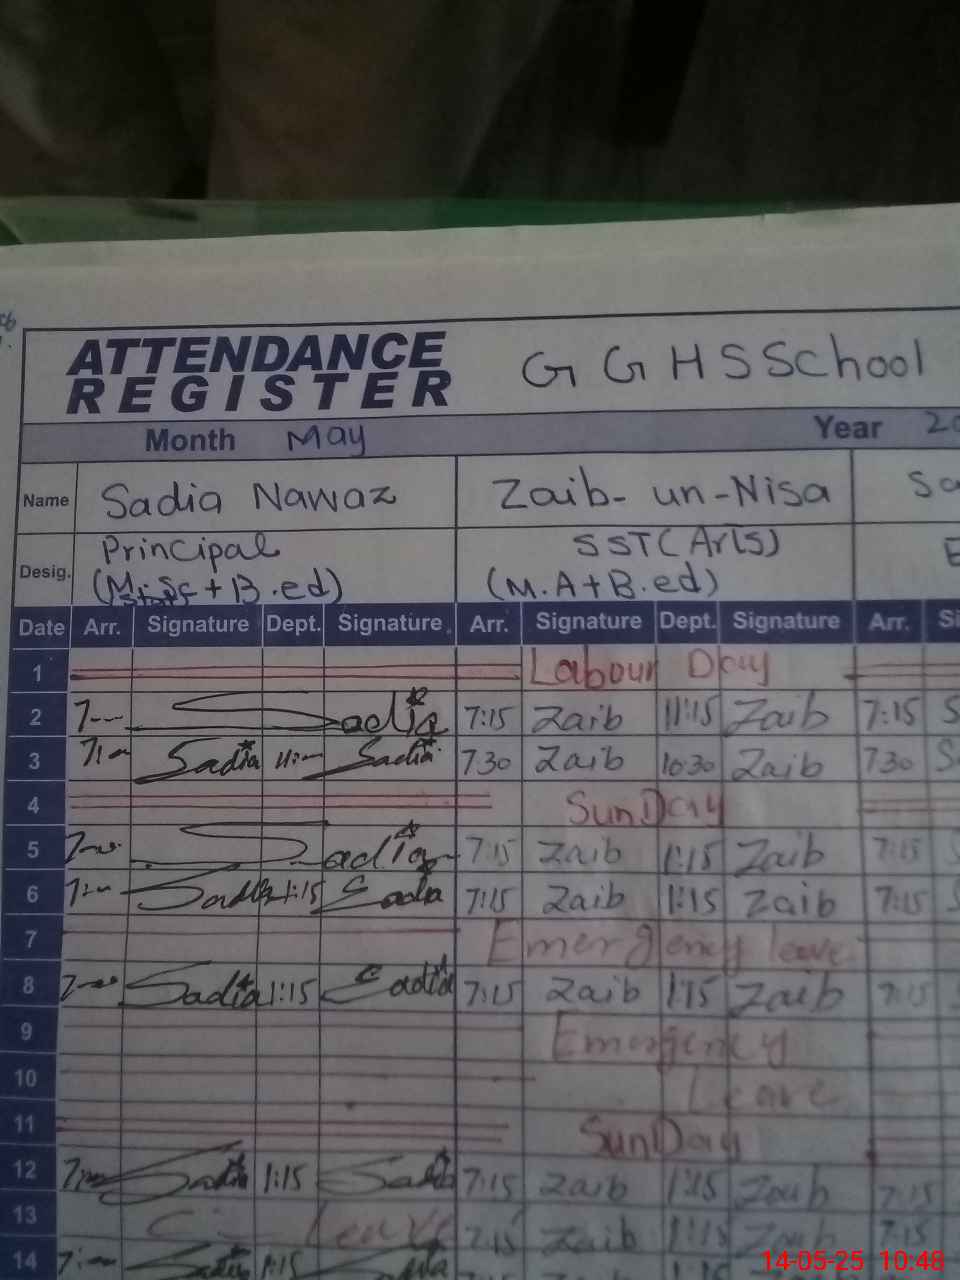 ATTENDANCE REGISTER GGHSSchool
Month May Year 20
Name Sadia Nawaz Zaib-un-Nisa Sa
Desig. Principal SST(Arts)
(M.Sc + B.ed) (M.A+B.ed) E
Date Arr. Signature Dept. Signature. Arr. Signature Dept. Signature Arr. Si
1 Labour Day
2 Sadia 7:15 Zaib 11:15 Zaib 7:15 S
3 Sadia Sadia 730 Zaib 10:30 Zaib 730 S
4 SunDay
5 Sadia 7:15 Zaib 1:15 Zaib 7:15 S
6 Sadia 1:15 Sadia 7:15 Zaib 1:15 Zaib 7:15 S
7 Emergency leave
8 Sadia 1:15 Sadia 7:15 Zaib 1:15 Zaib 7:15
9 Emergency
10 Leave
11 SunDay
12 Sadia 1:15 Sadia 7:15 Zaib 1:15 Zaib 7:15
13 Leave 7:15 Zaib 1:15 Zaib 7:15
14 Sadia 1:15 Sadia
14-05-25 10:48